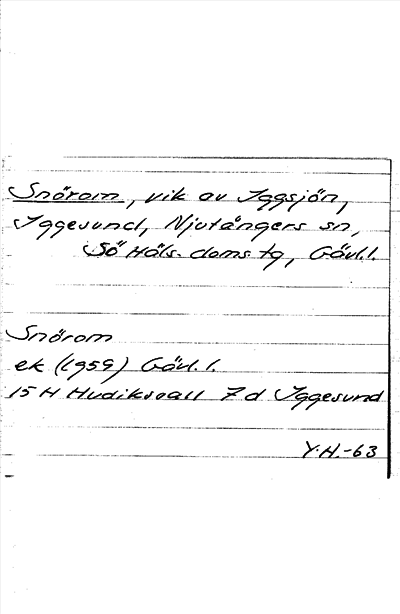 Snörom, vik av Iggsjön,
Iggesund, Njutångers sn,
Sö Häls. doms. tg, Gävl. l.
Snörom
ek (1959) Gävl. l.
15 H Hudiksvall 7 d Iggesund
Y.H.-63